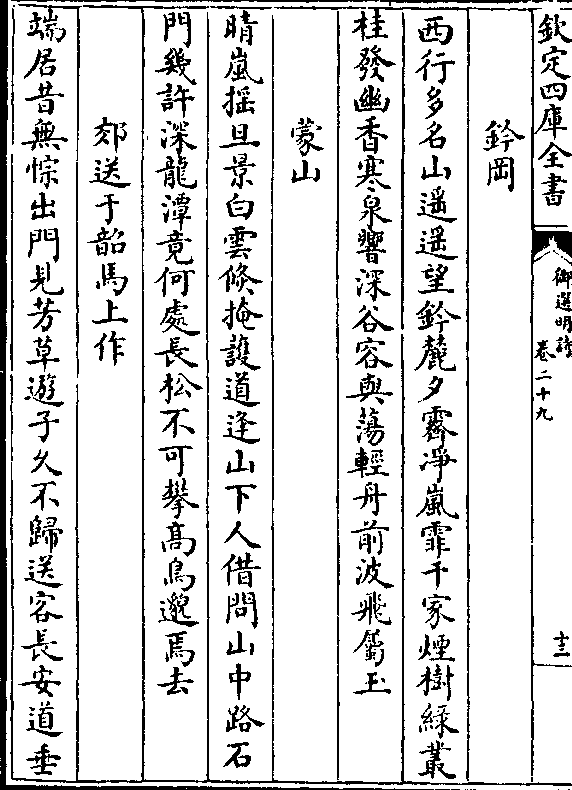 欽定四庫全書
御選明詩
卷二十九
十三
鈐岡
西行多名山遥遥望鈐麓夕霽浄嵐霏千家煙樹緑叢
桂發幽香寒泉響深谷容與蕩輕舟前波飛鸀玉
蒙山
晴嵐揺旦景白雲倏掩䕶道逢山下人借問山中路石
門幾許深龍潭竟何處長松不可攀髙鳥邈焉去
郊送于韶馬上作
端居昔無悰出門見芳草遊子久不歸送客長安道垂